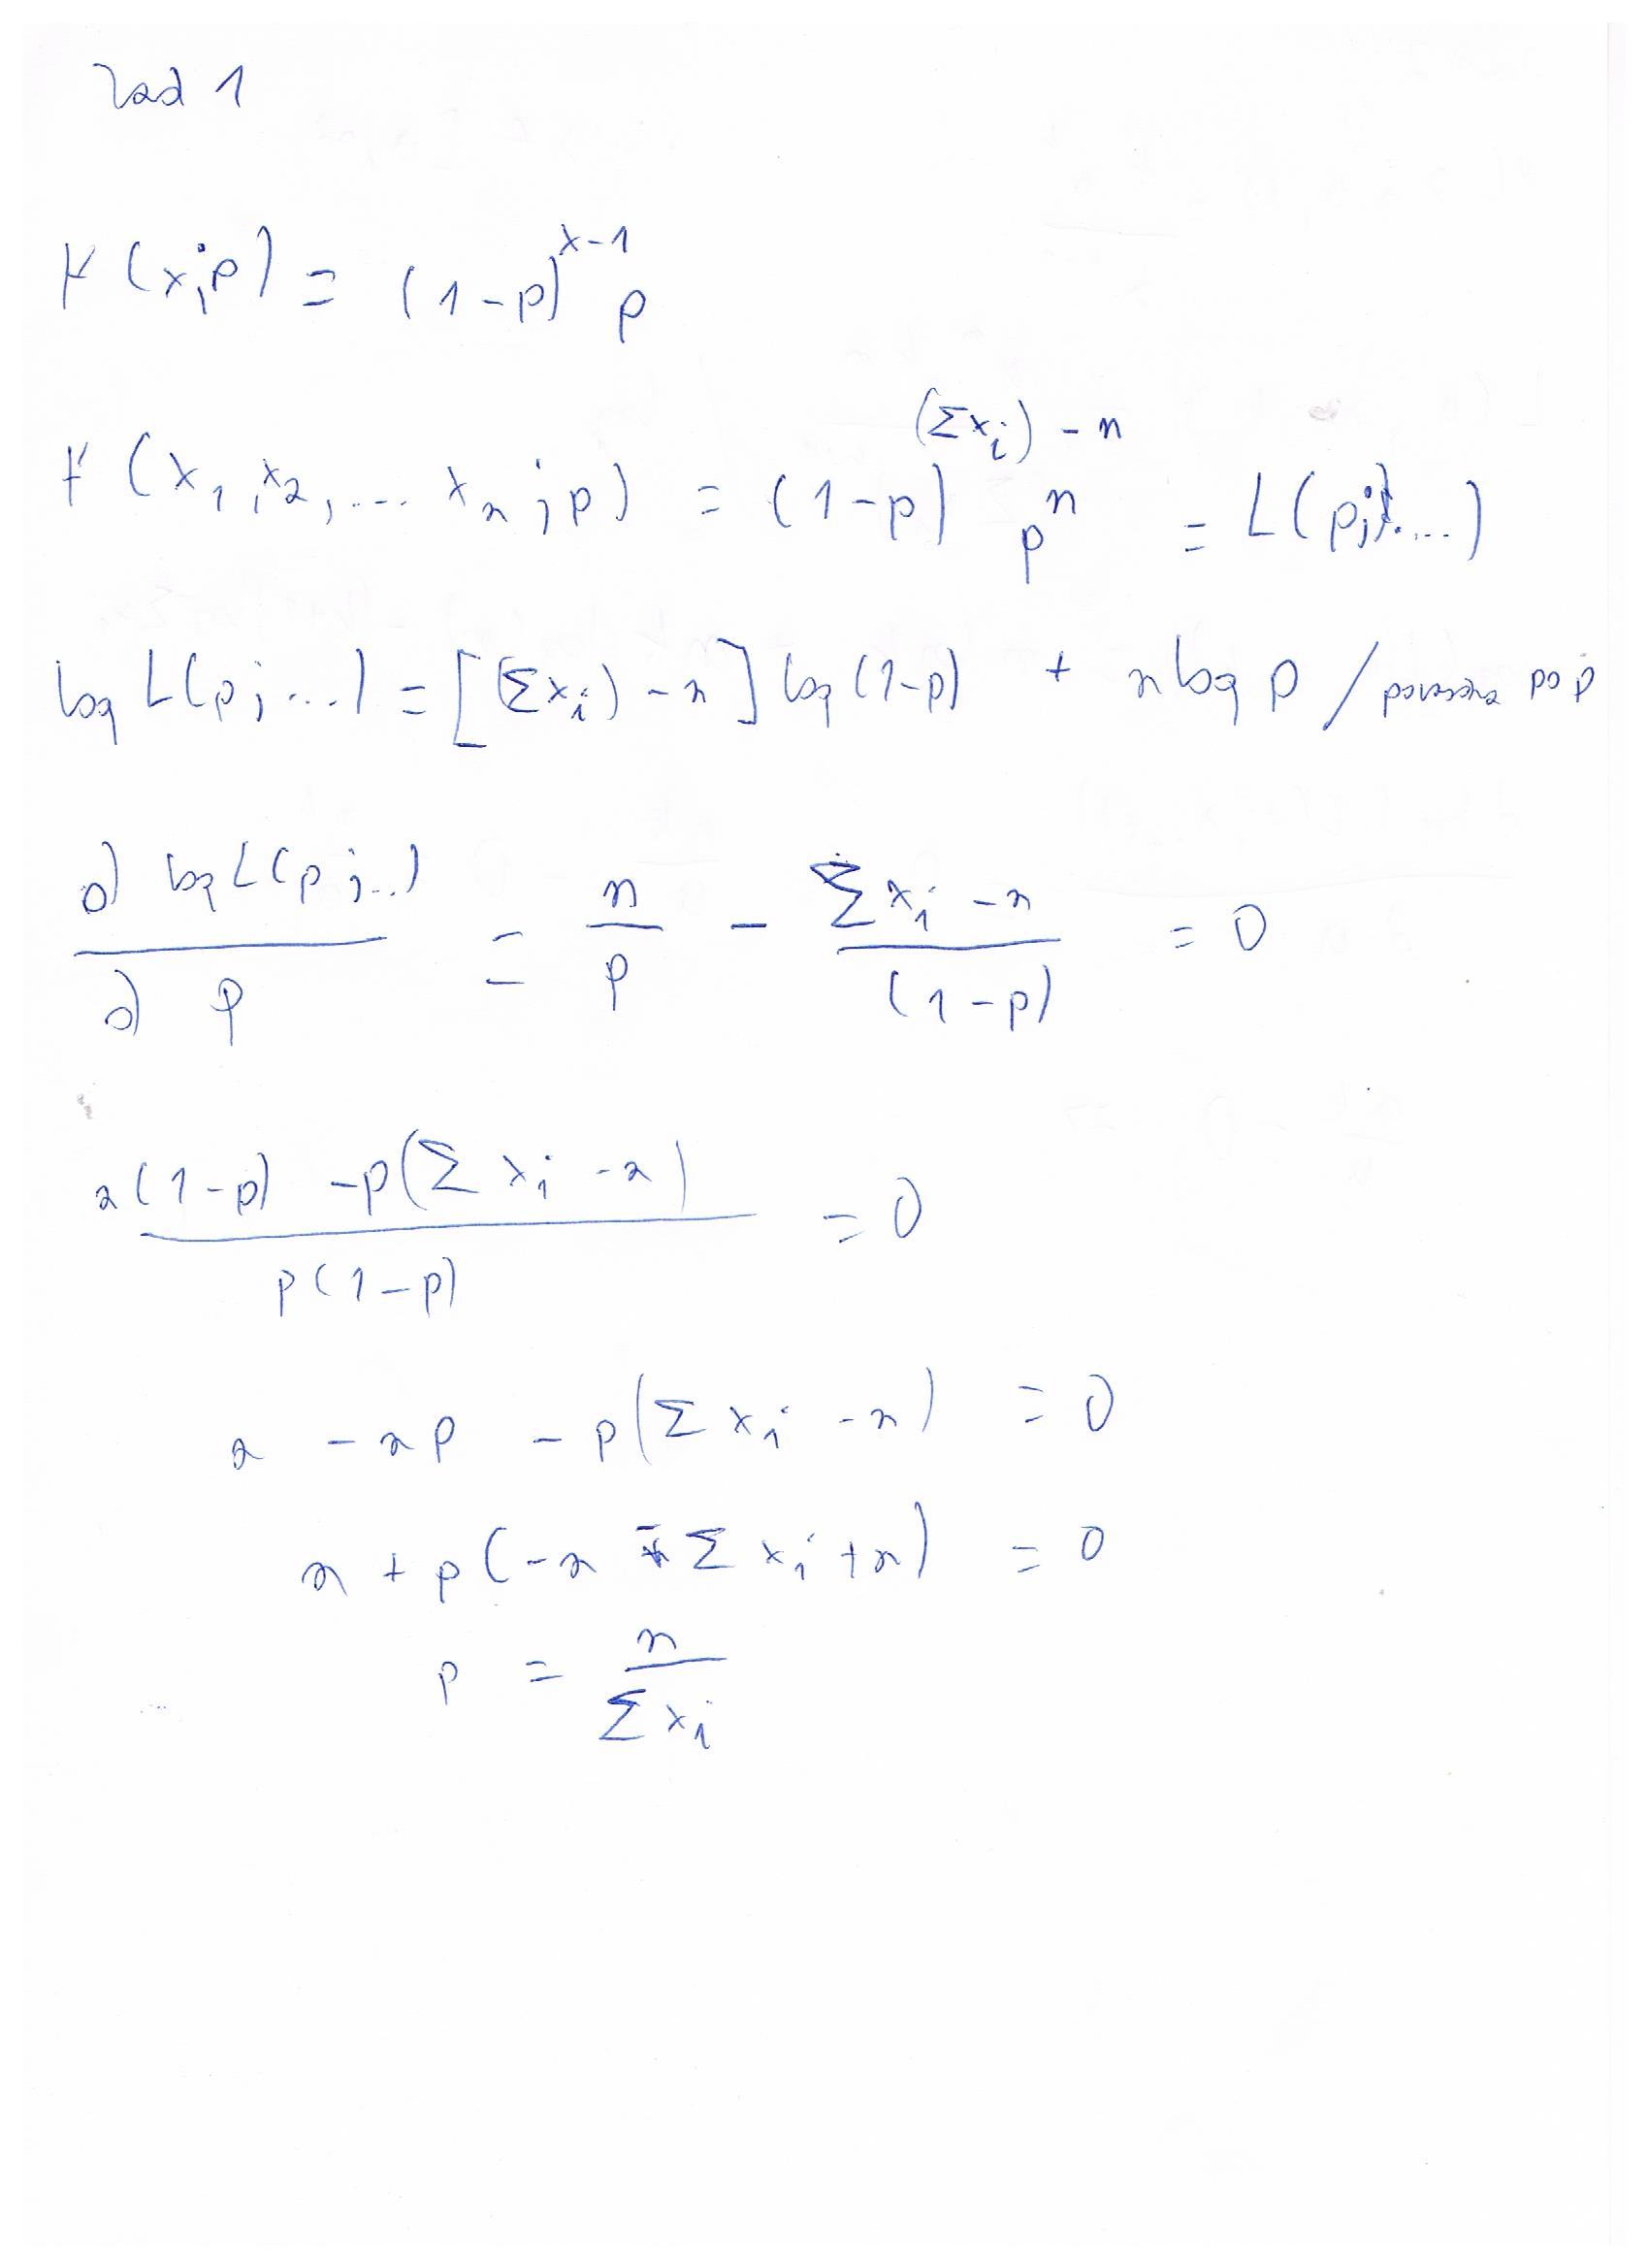 Zad 1
f(x;p) = (1-p)^{x-1} p
f(x₁, x₂, .... xₙ; p) = (1-p)^{(Σxᵢ) - n} pⁿ = L(p; ....)
log L(p; ...) = [(Σxᵢ) - n] log (1-p) + n log p / po p
∂ log L(p; ..) / ∂ p = n/p - (Σxᵢ - n)/(1-p) = 0
(n(1-p) - p(Σxᵢ - n)) / (p(1-p)) = 0
n - np - p(Σxᵢ - n) = 0
n + p(-n - Σxᵢ + n) = 0
p = n / Σxᵢ